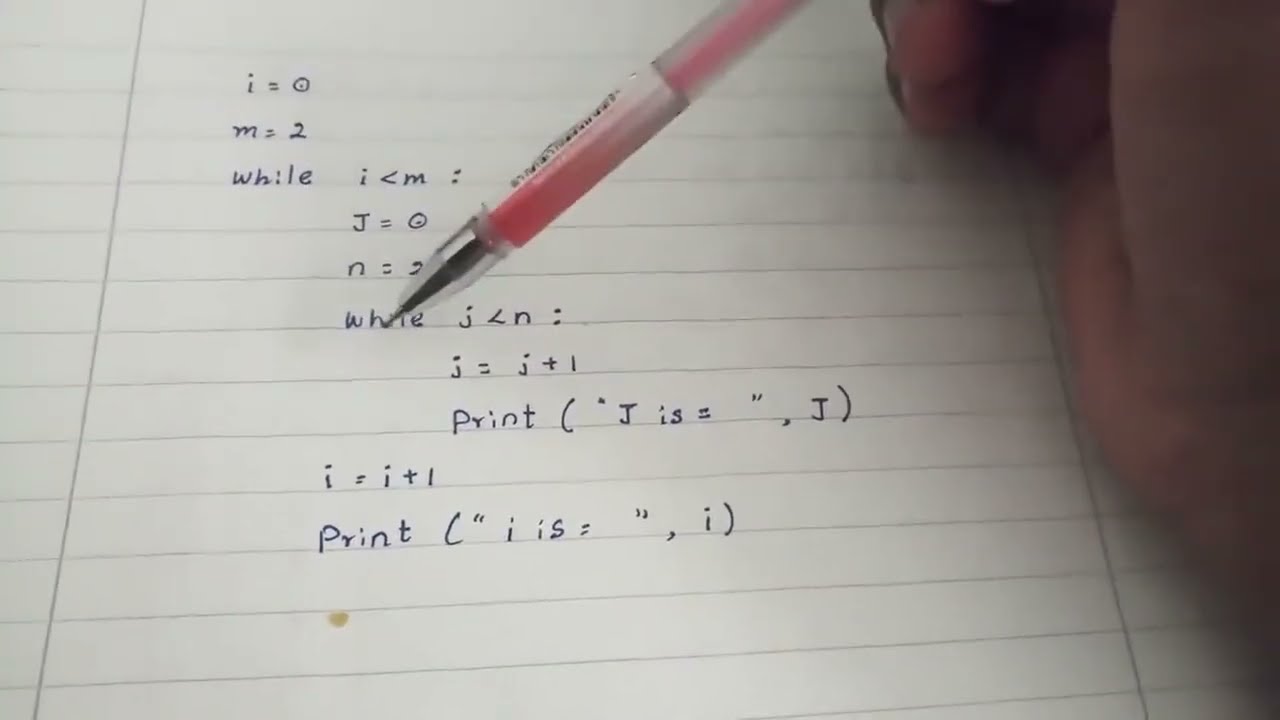 i = 0
m = 2
while i < m :
J = 0
n = 2
while j < n :
j = j + 1
Print ( " J is = " , J )
i = i + 1
Print ( " i is = " , i )